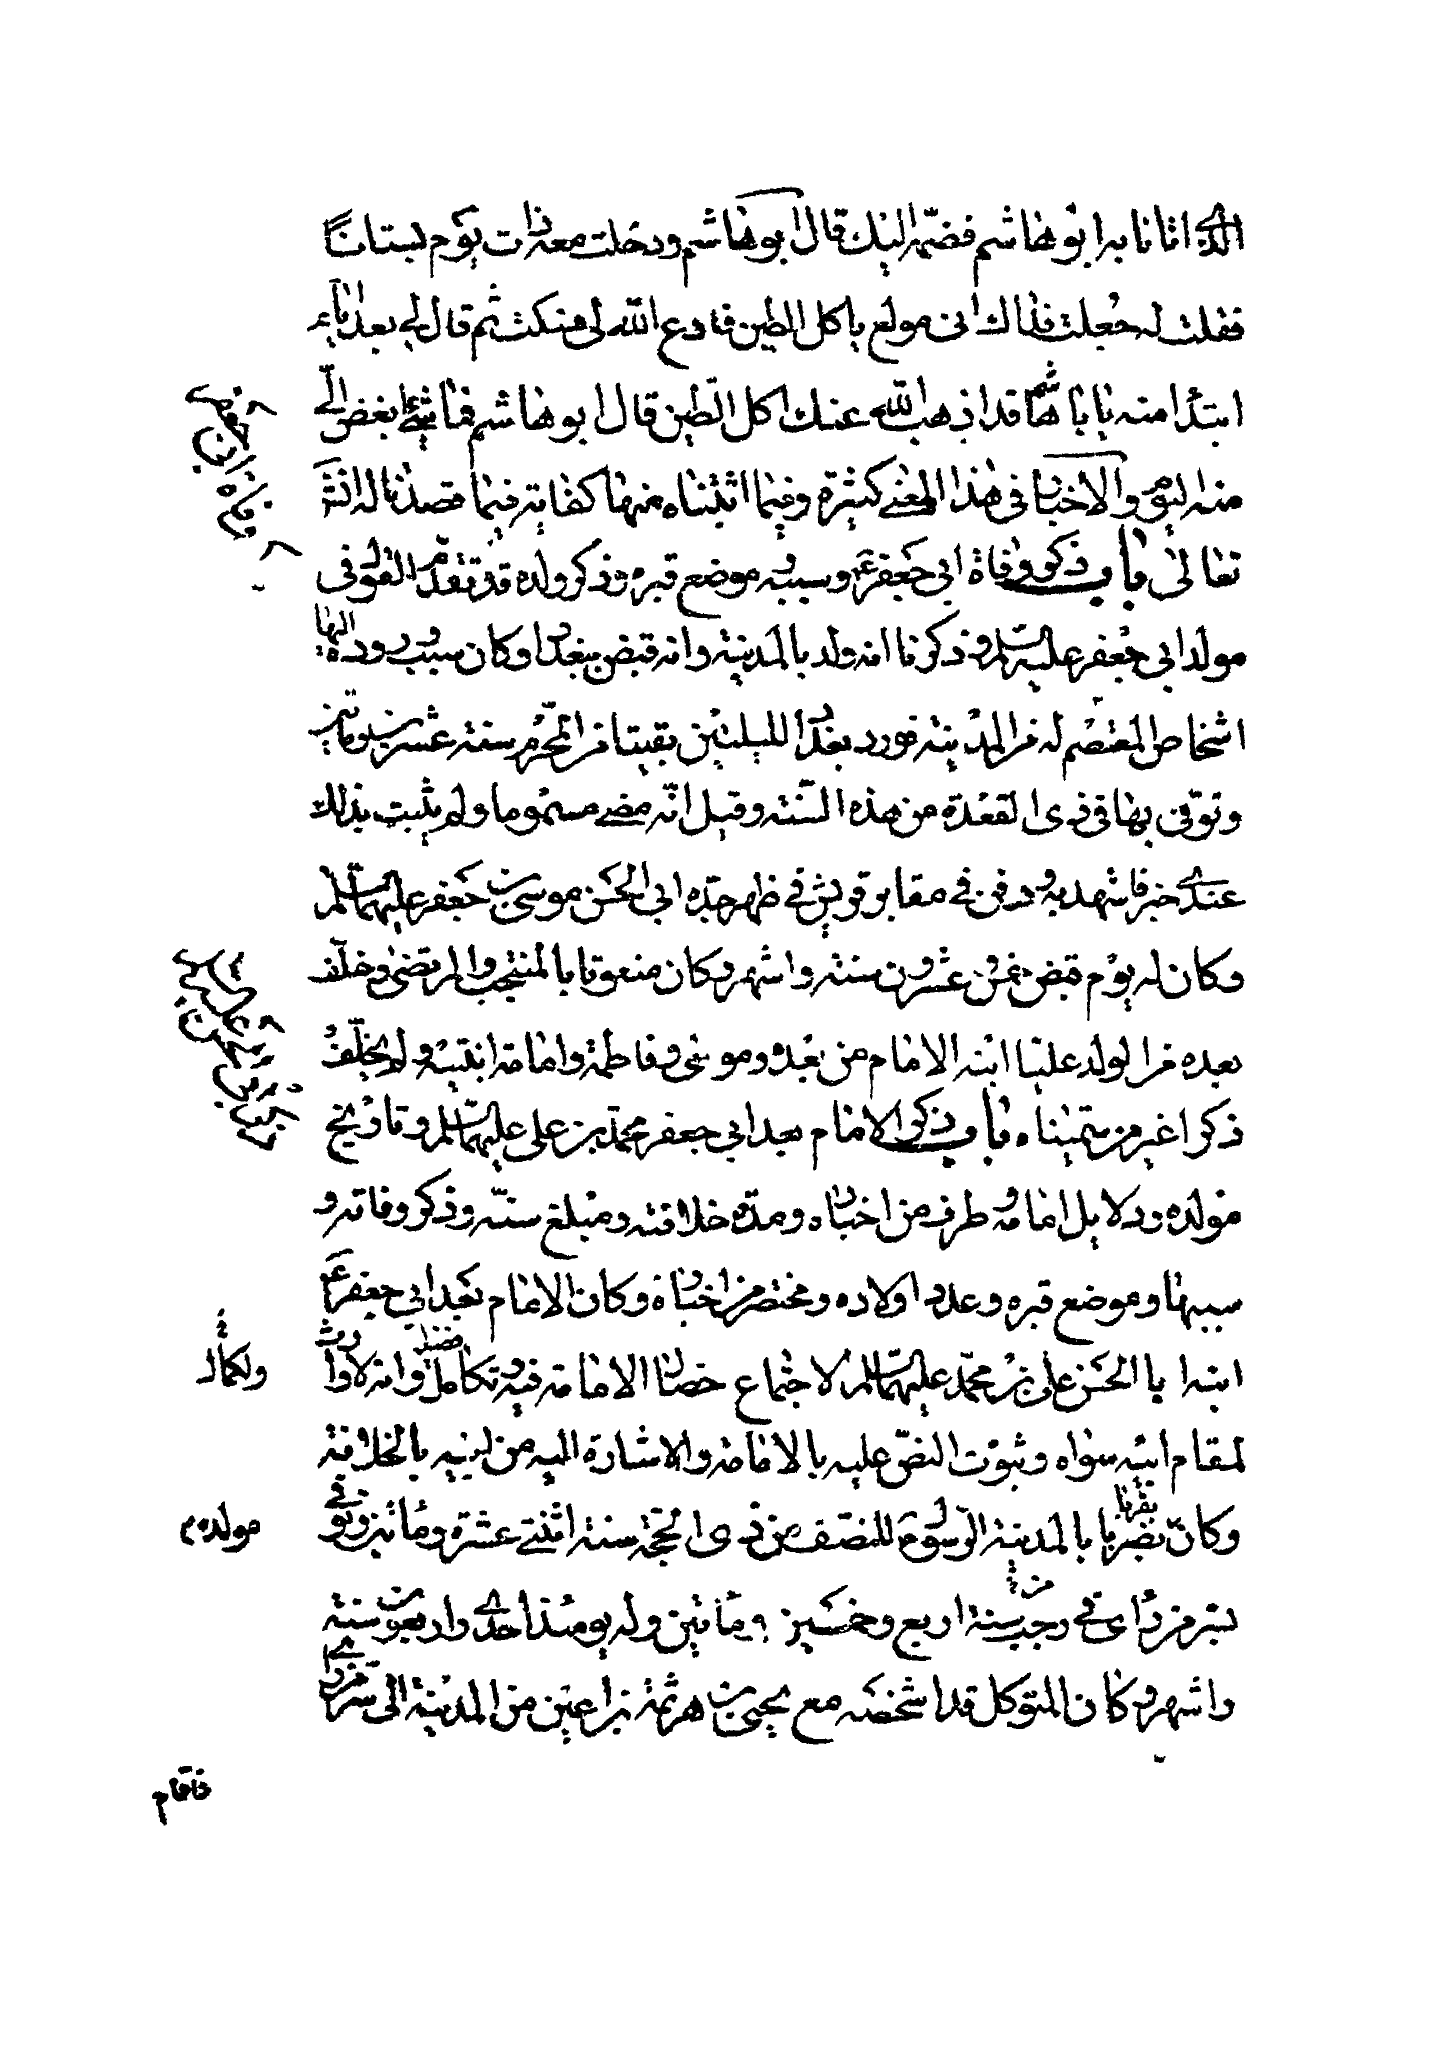 الذي اتانا به ابو هاشم فضمه اليك قال ابو هاشم ودخلت معه ذات يوم بستانا
فقلت له جعلت فداك انى مولع باكل الطين فادع الله لى فسكت ثم قال لي بعد ايام
ابتدا منه يا با هاشم قد اذهب الله عنك اكل الطين قال ابو هاشم فما شئ ابغض الي
منه اليوم والاخبار فى هذا المعنى كثيرة وفيما اثبتناه منها كفاية فيما قصدنا له انش
تعالى باب ذكر وفاة ابى جعفر ع وسببه وموضع قبره وذكر ولده قد تقدم القول فى
مولد ابى جعفر عليه السلم وذكرنا انه ولد بالمدينة وانه قبض ببغداد وكان سبب وروده اليها
اشخاص المعتصم له من المدينة فورد بغداد لليلتين بقيتا من المحرم سنة عشرين ومائتين
وتوفى بها فى ذى القعدة من هذه السنة وقيل انه مضى مسموما ولم يثبت بذلك
عندي خبر فاشهد به ودفن في مقابر قريش في ظهر جده ابى الحسن موسى بن جعفر عليهما السلم
وكان له يوم قبض خمس وعشرون سنة واشهر وكان منعوتا بالمنتجب والمرتضى وخلف
بعده من الولد عليا ابنه الامام من بعده وموسى وفاطمة وامامة ابنتيه ولم يخلف
ذكرا غير من سميناه باب ذكر الامام بعد ابى جعفر محمد بن على عليهما السلم وتاريخ
مولده ودلايل امامته وطرف من اخباره ومدة خلافته ومبلغ سنه وذكر وفاته و
سببها وموضع قبره وعدد اولاده ومختصر من اخباره وكان الامام بعد ابى جعفر ع
ابنه ابا الحسن على بن محمد عليهما السلم لاجتماع خصال الامامة فيه وتكامل فضله وانه لا وارث
ولكمال
لمقام ابيه سواه وثبوت النص عليه بالامامة والاشارة اليه من ابيه بالخلافة
وكان بصريا بالمدينة الرسول ع للنصف من ذى الحجة سنة اثنتي عشرة ومائتين وتوفي
مولده م
بسر من راى في رجب سنة اربع وخمسين ومائتين وله يومئذ احدى واربعون سنة
واشهر وكان المتوكل قد اشخصه مع يحيى بن هرثمة بن اعين من المدينة الى سر من راي
فاقام